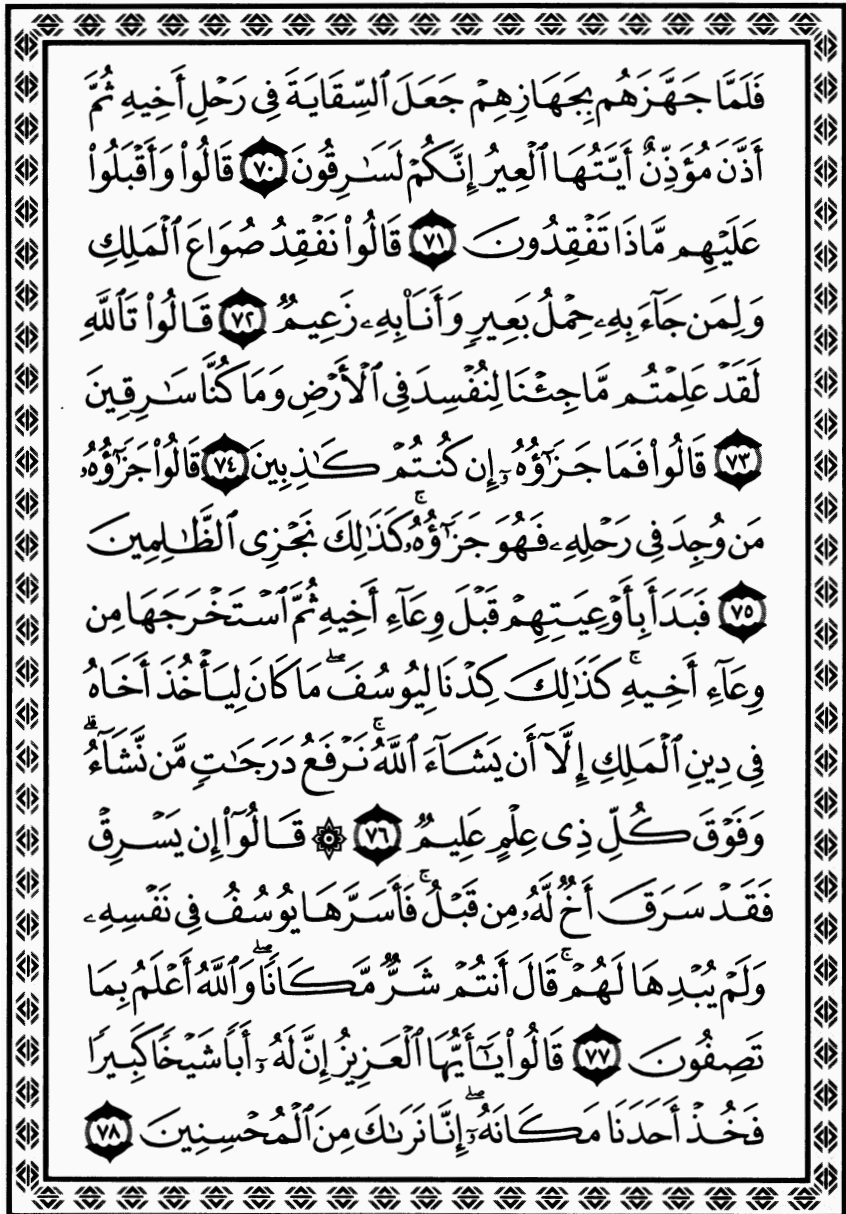 فَلَمَّا جَهَّزَهُم بِجَهَازِهِمْ جَعَلَ ٱلسِّقَايَةَ فِى رَحْلِ أَخِيهِ ثُمَّ
أَذَّنَ مُؤَذِّنٌ أَيَّتُهَا ٱلْعِيرُ إِنَّكُمْ لَسَٰرِقُونَ ٧٠ قَالُوا۟ وَأَقْبَلُوا۟
عَلَيْهِم مَّاذَا تَفْقِدُونَ ٧١ قَالُوا۟ نَفْقِدُ صُوَاعَ ٱلْمَلِكِ
وَلِمَن جَآءَ بِهِۦ حِمْلُ بَعِيرٍ وَأَنَا۠ بِهِۦ زَعِيمٌ ٧٢ قَالُوا۟ تَٱللَّهِ
لَقَدْ عَلِمْتُم مَّا جِئْنَا لِنُفْسِدَ فِى ٱلْأَرْضِ وَمَا كُنَّا سَٰرِقِينَ
٧٣ قَالُوا۟ فَمَا جَزَٰٓؤُهُۥٓ إِن كُنتُمْ كَٰذِبِينَ ٧٤ قَالُوا۟ جَزَٰٓؤُهُۥ
مَن وُجِدَ فِى رَحْلِهِۦ فَهُوَ جَزَٰٓؤُهُۥ ۚ كَذَٰلِكَ نَجْزِى ٱلظَّٰلِمِينَ
٧٥ فَبَدَأَ بِأَوْعِيَتِهِمْ قَبْلَ وِعَآءِ أَخِيهِ ثُمَّ ٱسْتَخْرَجَهَا مِن
وِعَآءِ أَخِيهِ ۚ كَذَٰلِكَ كِدْنَا لِيُوسُفَ ۖ مَا كَانَ لِيَأْخُذَ أَخَاهُ
فِى دِينِ ٱلْمَلِكِ إِلَّآ أَن يَشَآءَ ٱللَّهُ ۚ نَرْفَعُ دَرَجَٰتٍ مَّن نَّشَآءُ ۗ
وَفَوْقَ كُلِّ ذِى عِلْمٍ عَلِيمٌ ٧٦ ۞ قَالُوٓا۟ إِن يَسْرِقْ
فَقَدْ سَرَقَ أَخٌ لَّهُۥ مِن قَبْلُ ۚ فَأَسَرَّهَا يُوسُفُ فِى نَفْسِهِۦ
وَلَمْ يُبْدِهَا لَهُمْ ۚ قَالَ أَنتُمْ شَرٌّ مَّكَانًا ۖ وَٱللَّهُ أَعْلَمُ بِمَا
تَصِفُونَ ٧٧ قَالُوا۟ يَٰٓأَيُّهَا ٱلْعَزِيزُ إِنَّ لَهُۥٓ أَبًا شَيْخًا كَبِيرًا
فَخُذْ أَحَدَنَا مَكَانَهُۥٓ ۖ إِنَّا نَرَىٰكَ مِنَ ٱلْمُحْسِنِينَ ٧٨